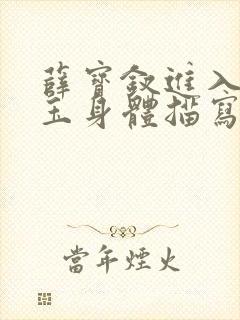 薛寶釵進入
玉身體描寫
當年煙火